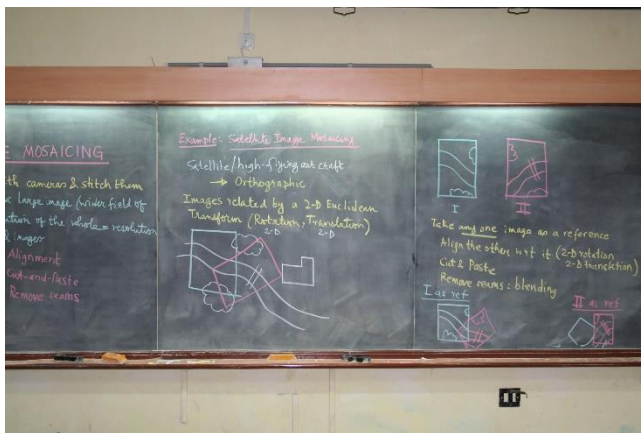 E MOSAICING
th cameras & stitch them
large image (wider field of
tion of the whole = resolution
images
Alignment
Cut-and-Paste
Remove seams
Example: Satellite Image Mosaicing
Satellite/high-flying air craft
→ Orthographic
Images related by a 2-D Euclidean
Transform (Rotation, Translation)
2-D 2-D
I II
Take any one image as a reference
Align the other w.r.t it (2-D rotation
2-D translation)
Cut & Paste
Remove seams: blending
I as ref II as ref